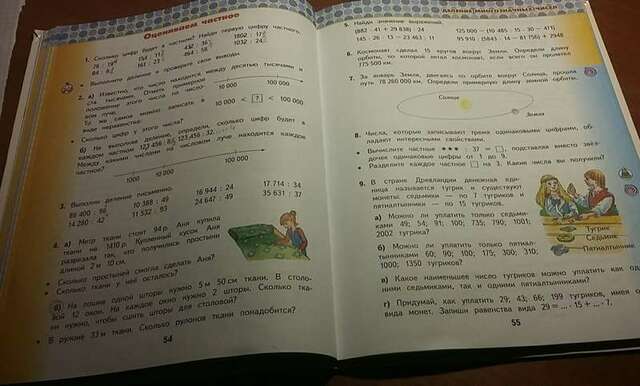 Оцениваем частное
1. Сколько цифр будет в частном? Найди первую цифру частного.
• Выполни деление и проверь свои выводы.
2. а) Известно, что число находится между десятью тысячами и
ста тысячами. Отметь примерное
положение этого числа на число-
вом луче.
10 000
100 000
То же самое можно записать в
виде неравенства:
10 000 < ? < 100 000
• Сколько цифр у этого числа?
б) Не выполняя деления, определи, сколько цифр будет в
каждом частном
Между какими числами на числовом луче находится каждое
частное?
1000
10 000
100 000
3. Выполни деление письменно.
10 388 : 49
16 944 : 24
17 714 : 34
14 280 : 42
11 532 : 93
24 647 : 49
35 631 : 37
4. а) Метр ткани стоит 94 р. Аня купила
ткани на 1410 р. Купленный кусок Аня
разрезала так, что получились простыни
длиной 2 м 10 см.
• Сколько простыней смогла сделать Аня?
• Сколько ткани у неё осталось?
б) На пошив одной шторы нужно 5 м 50 см ткани. В столо-
вой 12 окон. На каждое окно нужно 2 шторы. Сколько тка-
ни нужно, чтобы сшить шторы для столовой?
• В рулоне 33 м ткани. Сколько рулонов ткани понадобится?
54
ДЕЛЕНИЕ МНОГОЗНАЧНЫХ ЧИСЕЛ
5. Найди значение выражений.
(882 · 41 + 29 838) : 24
125 000 – (19 485 : 15 · 30 – 411)
145 · 26 · 13 – 23 463 :
95 910 : (5841 : 14 – 81 756) + 2948
6. Космонавт сделал 15 кругов вокруг Земли. Определи длину
орбиты, по которой летал космонавт, если всего он пролетел
775 500 км.
7. За январь Земля, двигаясь по орбите вокруг Солнца, прошла
путь 78 260 000 км. Определи примерную длину земной орбиты.
Солнце
Земля
8. Числа, которые записывают тремя одинаковыми цифрами, об-
ладают интересными свойствами.
• Вычислите частные *** : 37 = □, подставляя вместо звёз-
дочек одинаковые цифры от 1 до 9.
• Разделите каждое частное □ на 3. Какие числа вы получили?
9. В стране Древляндии денежная еди-
ница называется тугрик и существуют
монеты: семидьмик — по 7 тугриков и
пятиалтынник — по 15 тугриков.
а) Можно ли уплатить только семидь-
ками 49; 54; 91; 100; 735; 790; 1001;
2002 тугрика?
б) Можно ли уплатить только пятиал-
тынниками 60; 90; 100; 175; 300; 310;
1000; 1350 тугриков?
Тугрик
Седьмик
Пятиалтынник
в) Какое наименьшее число тугриков можно уплатить как од-
ними седьмиками, так и одними пятиалтынниками?
г) Придумай, как уплатить 29; 43; 66; 199 тугриков, имея
вида монет. Запиши равенства вида 29 = ... · 15 + ... · 7.
55